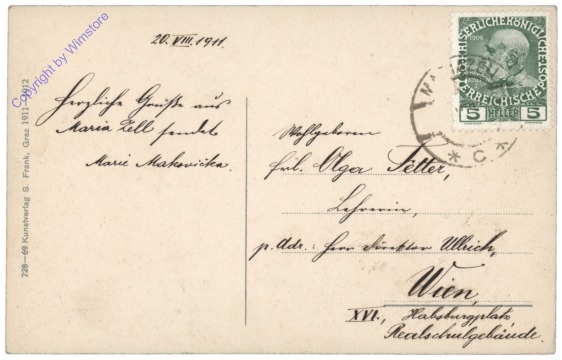 20. VIII. 1911.
Herzliche Grüße aus
Maria Zell sendet
Marie Makovička.
728—69 Kunstverlag S. Frank, Graz 1911—1912
Copyright by Wimstore
KAISERLICHE KÖNIGLICHE
ÖSTERREICHISCHE
1908
5 HELLER 5
* C *
Wohlgeboren
Frl. Olga Fetter,
Lehrerin,
p. Adr.: Herr Direktor Ullrich,
Wien,
XVI., Habsburgplatz
Realschulgebäude.